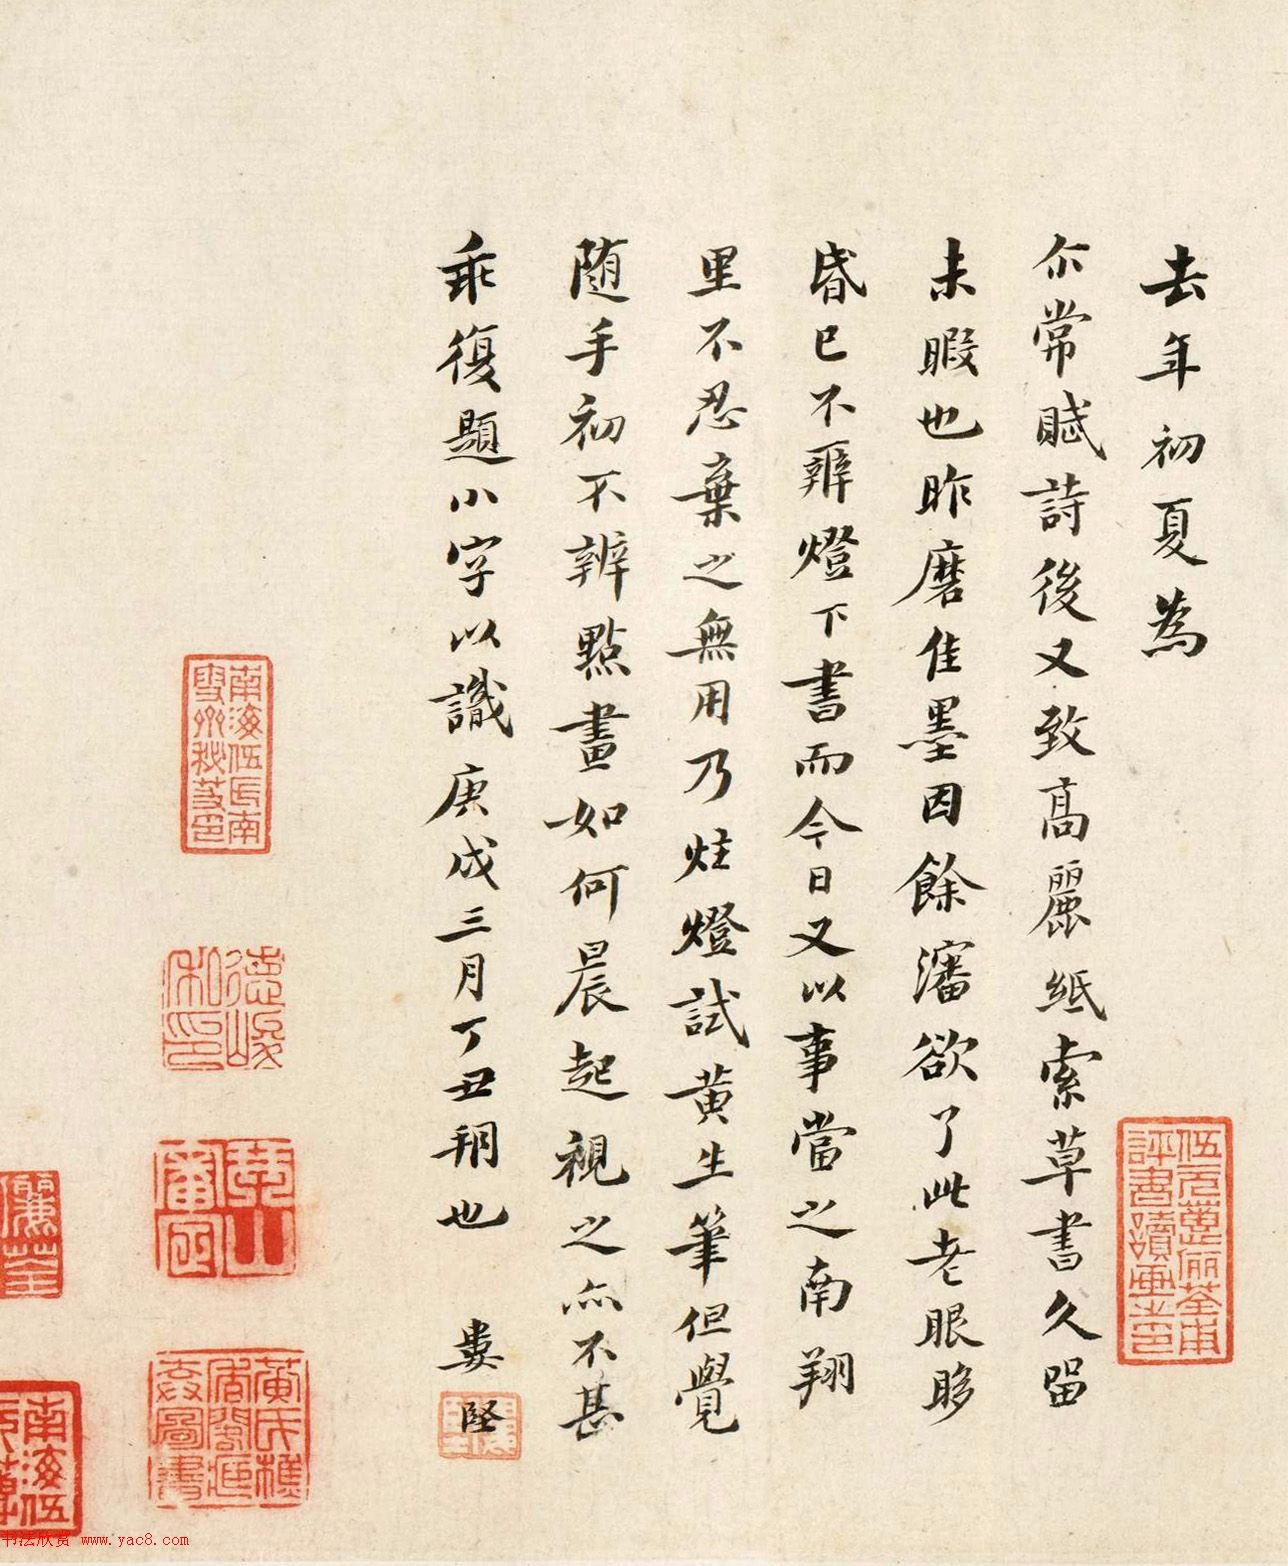 去年初夏為
尒常賦詩後又致高麗紙索草書久留
未暇也昨磨佳墨因餘瀋欲了此老眼眵
昏已不辨燈下書而今日又以事當之南翔
里不忍棄之無用乃炷燈試黄生筆但覺
随手初不辨點畫如何晨起視之亦不甚
乖復題小字以識庚戌三月丁丑朔也 婁堅
伍元蕙儷荃甫
評書讀畫之印
南海伍氏南
雪州秘芨印
德峻
私印
儷荃
南海伍
书法欣赏 www.yac8.com